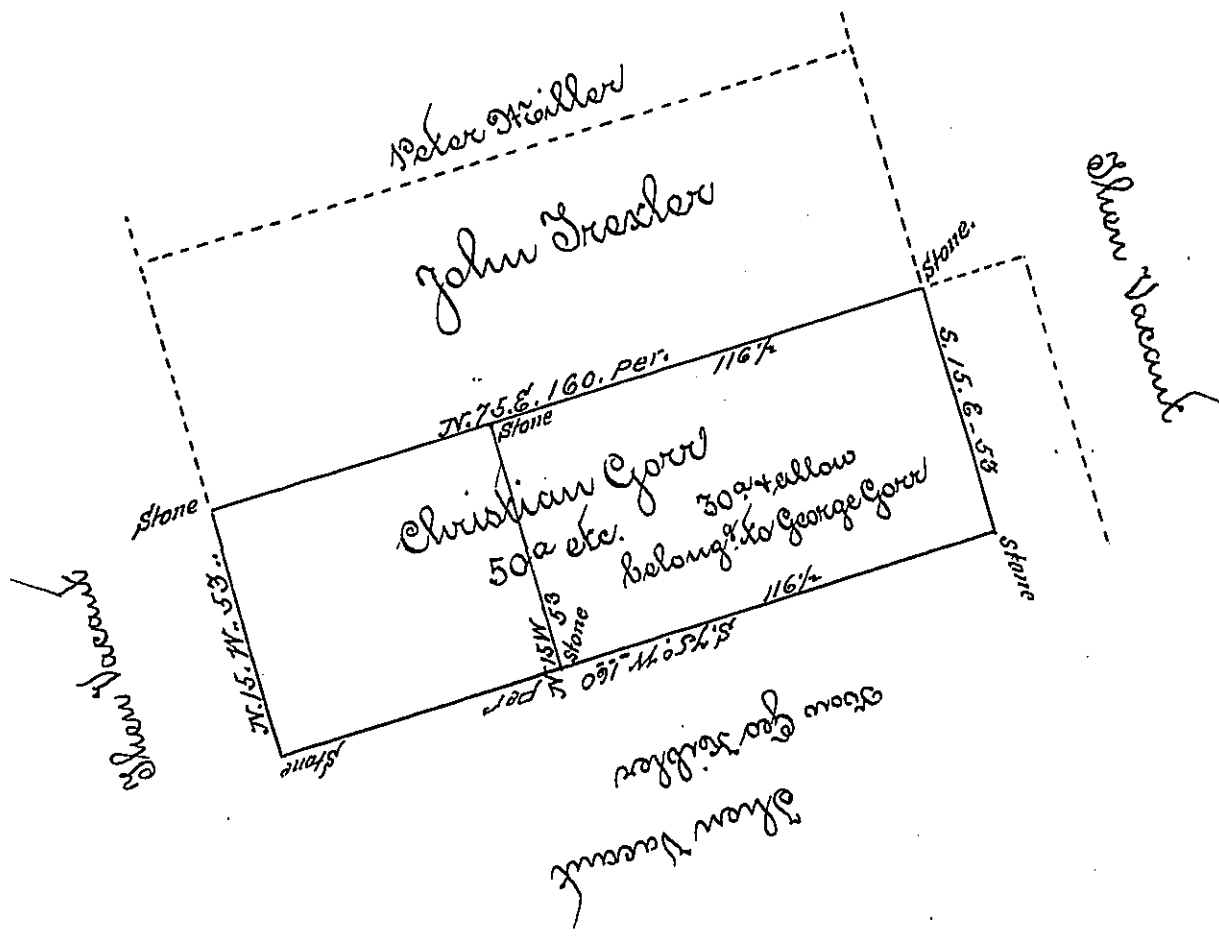 Peter Miller
John Trexler
Then Vacant
Stone.
N. 75. E. 160. per. 116½
Stone
Stone
S. 15. E - 53
Christian Gorr
50a etc.
30a & allow
belongg. to George Gorr
Stone
N. 15. W. 53..
Then Vacant
N - 15 W 53
Stone
116½
S. 75° W - 160 per
Stone
Now Geo
Then Vacant